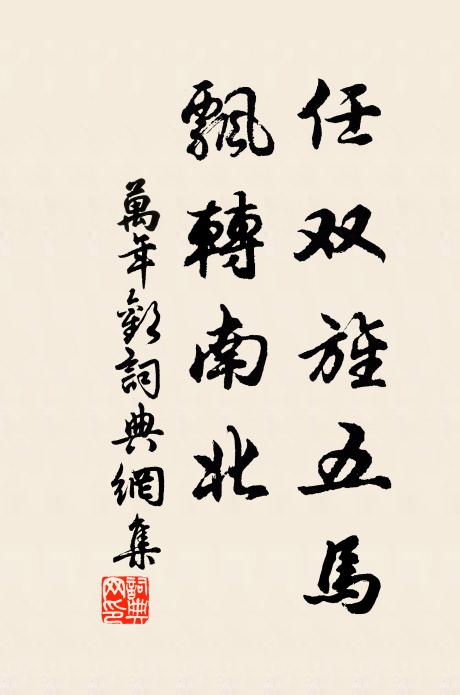 任双旌五馬
飄轉南北
萬年歡詞典網集
詞典網印